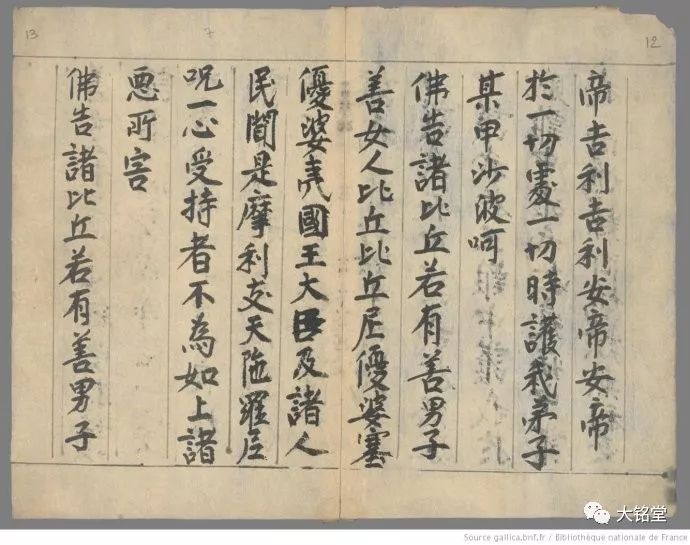 13
7
12
帝吉利吉利安帝安帝
於一切處一切時護我弟子
某甲沙波呵
佛告諸比丘若有善男子
善女人比丘比丘尼優婆塞
優婆夷國王大臣及諸人
民聞是摩利支天陁羅尼
呪一心受持者不為如上諸
惡所害
佛告諸比丘若有善男子
大铭堂
Source gallica.bnf.fr / Bibliothèque nationale de France